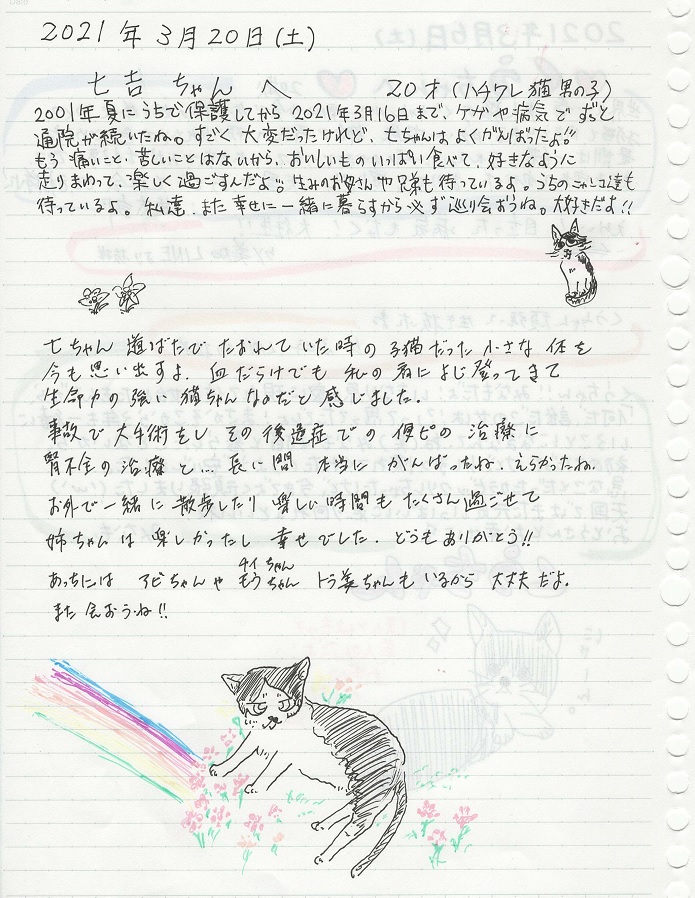 2021年3月20日(土)
七吉ちゃんへ 20才(ハチワレ猫男の子)
2001年夏にうちで保護してから2021年3月16日まで、ケガや病気でずっと
通院が続いたね。すごく大変だったけれど、七ちゃんはよくがんばったよ!!
もう痛いこと、苦しいことはないから、おいしいものいっぱい食べて、好きなように
走りまわって、楽しく過ごすんだよ!! 生みのお母さんや兄弟も待っているよ。うちのニャンコ達も
待っているよ。私達、また幸せに一緒に暮らすから必ず巡り会おうね。大好きだよ!!
七ちゃん 道ばたでたおれていた時の子猫だった小さな体を
今も思い出すよ。血だらけでも私の肩によじ登ってきて
生命力の強い猫ちゃんなのだと感じました.
事故で大手術をし その後遺症での便ピの治療に
腎不全の治療と... 長い間 本当にがんばったね.えらかったね.
お外で一緒に散歩したり 楽しい時間もたくさん過ごせて
姉ちゃんは楽しかったし 幸せでした. どうもありがとう!!
あっちには アビちゃんや チイちゃん モウちゃん トラ美ちゃんもいるから 大丈夫だよ.
また会おうね!!